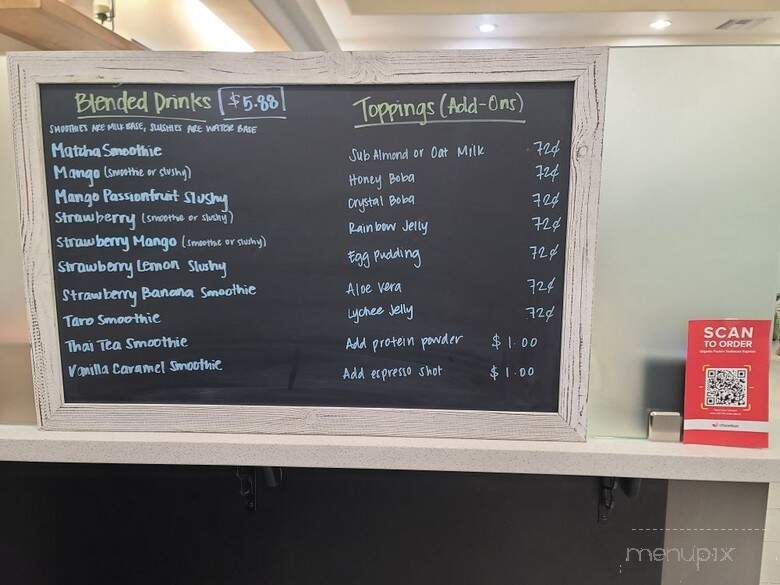 Blended Drinks $5.88
SMOOTHIES ARE MILK BASE, SLUSHIES ARE WATER BASE
Matcha Smoothie
Mango (smoothie or slushy)
Mango Passionfruit Slushy
Strawberry (smoothie or slushy)
Strawberry Mango (smoothie or slushy)
Strawberry Lemon Slushy
Strawberry Banana Smoothie
Taro Smoothie
Thai Tea Smoothie
Vanilla Caramel Smoothie
Toppings (Add-Ons)
Sub Almond or Oat Milk 72¢
Honey Boba 72¢
Crystal Boba 72¢
Rainbow Jelly 72¢
Egg Pudding 72¢
Aloe Vera 72¢
Lychee Jelly 72¢
Add protein powder $1.00
Add espresso shot $1.00
SCAN
TO ORDER
menupix